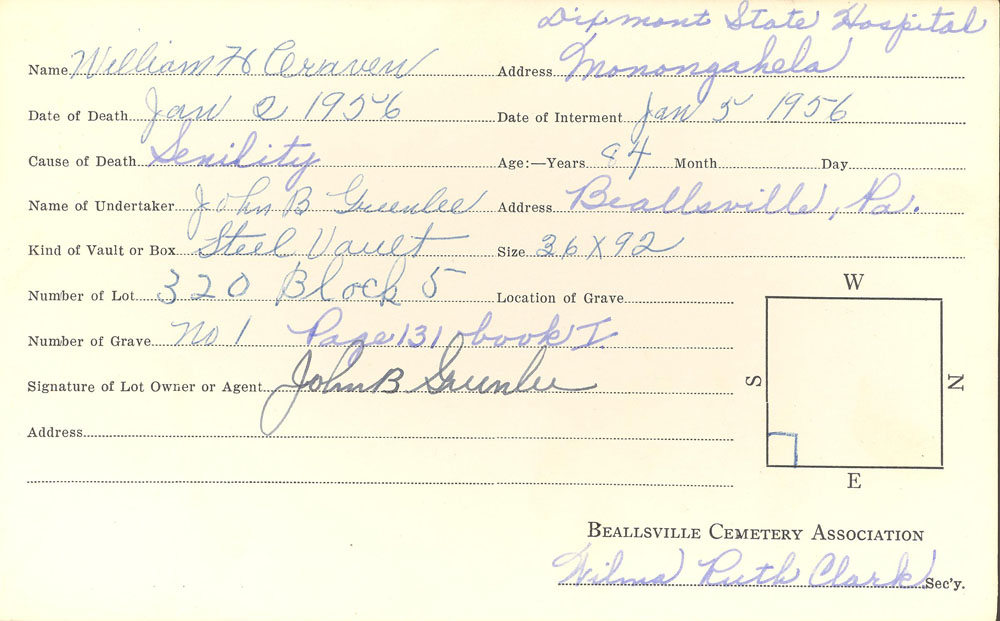 Dixmont State Hospital
Name William H Craven Address Monongahela
Date of Death Jan 2 1956 Date of Interment Jan 5 1956
Cause of Death Senility Age:—Years 84 Month Day
Name of Undertaker John B Greenlee Address Beallsville, Pa.
Kind of Vault or Box Steel Vault Size 36 X 92
Number of Lot 320 Block 5 Location of Grave
W
Number of Grave No 1 Page 131 book I
S
N
Signature of Lot Owner or Agent John B Greenlee
Address
E
Beallsville Cemetery Association
Wilma Ruth Clark Sec'y.